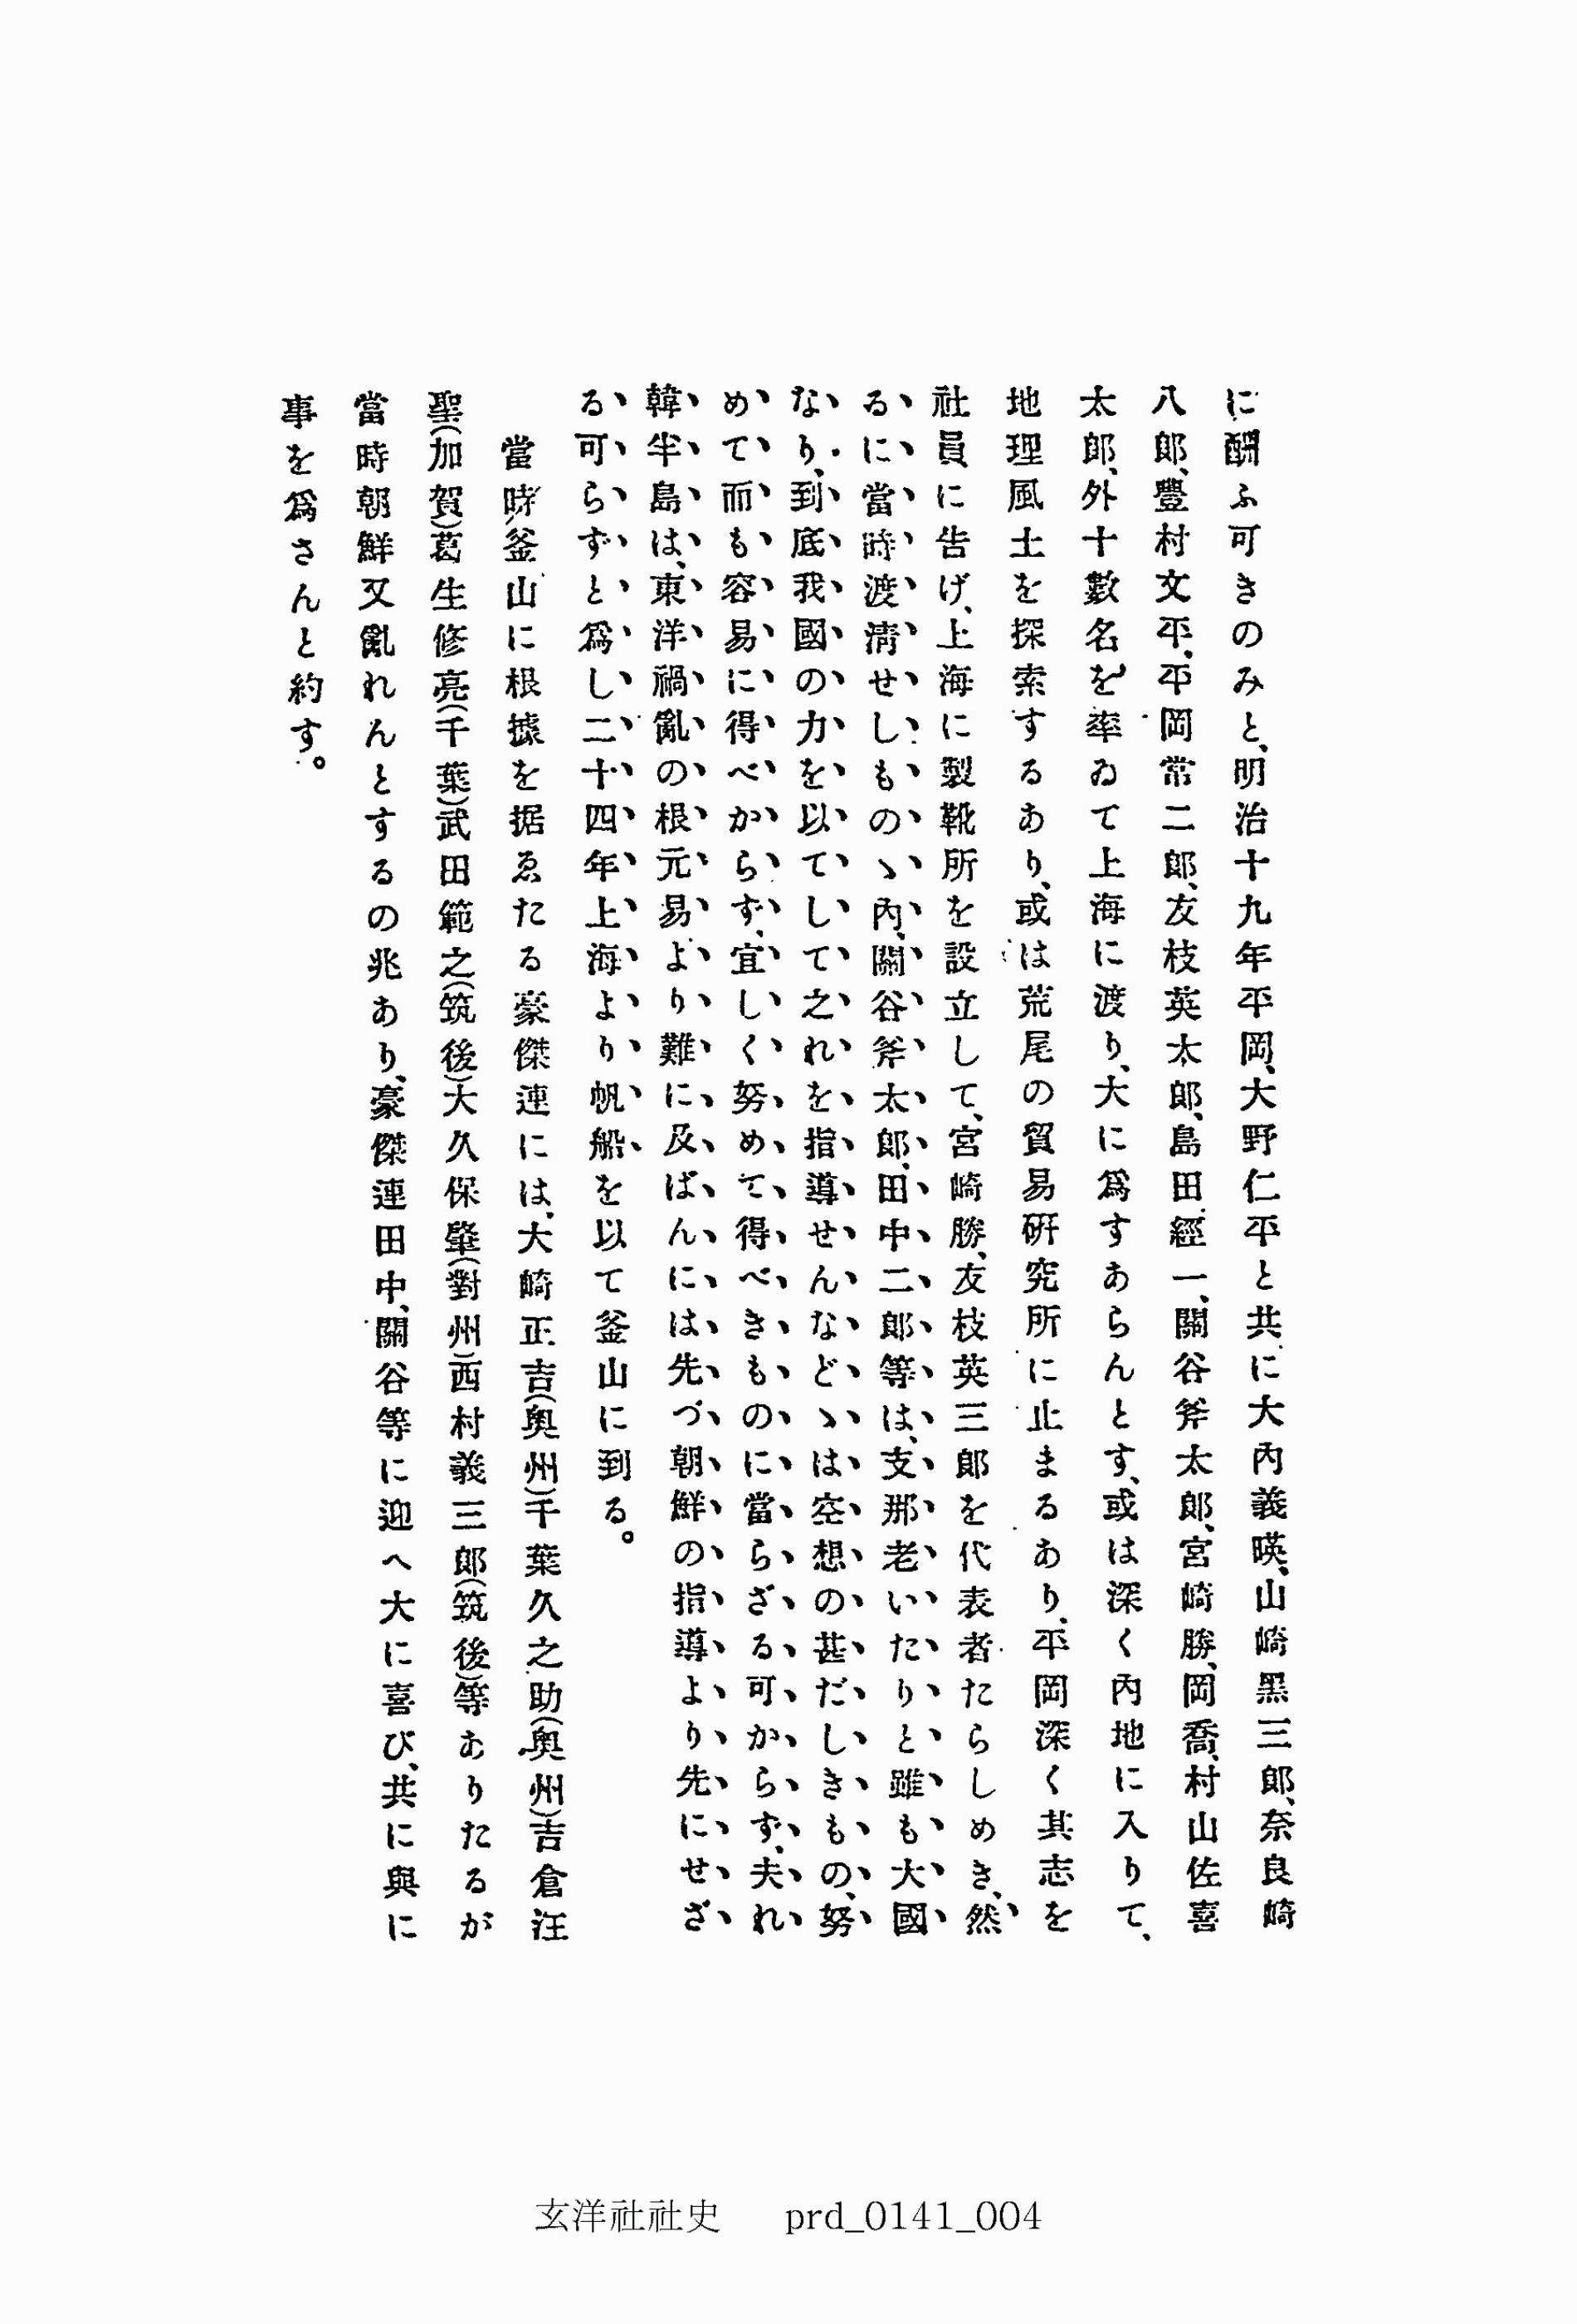 に酬ふ可きのみと、明治十九年平岡、大野仁平と共に大內義暎、山崎黑三郎、奈良崎
八郎、豐村文平、平岡常二郎、友枝英太郎、島田經一、關谷斧太郎、宮崎勝、岡喬、村山佐喜
太郎、外十數名を率ゐて上海に渡り、大に爲すあらんとす、或は深く內地に入りて、
地理風土を探索するあり、或は荒尾の貿易硏究所に止まるあり、平岡深く其志を
社員に告げ、上海に製靴所を設立して、宮崎勝、友枝英三郎を代表者たらしめき、然
るに當時渡淸せしものゝ內、關谷斧太郎、田中二郎等は、支那老いたりと雖も大國
なり、到底我國の力を以てして之れを指導せんなどゝは空想の甚だしきもの、努
めて而も容易に得べからず、宜しく努めて得べきものに當らざる可からず、夫れ
韓半島は、東洋禍亂の根元易より難に及ばんには先づ朝鮮の指導より先にせざ
る可らずと爲し二十四年上海より帆船を以て釜山に到る。
當時釜山に根據を据ゑたる豪傑連には、大崎正吉(奥州)千葉久之助(奥州)吉倉汪
聖(加賀)葛生修亮(千葉)武田範之(筑後)大久保肇(對州)西村義三郎(筑後)等ありたるが
當時朝鮮又亂れんとするの兆あり、豪傑連田中、關谷等に迎へ大に喜び、共に與に
事を爲さんと約す。
玄洋社社史 prd_0141_004